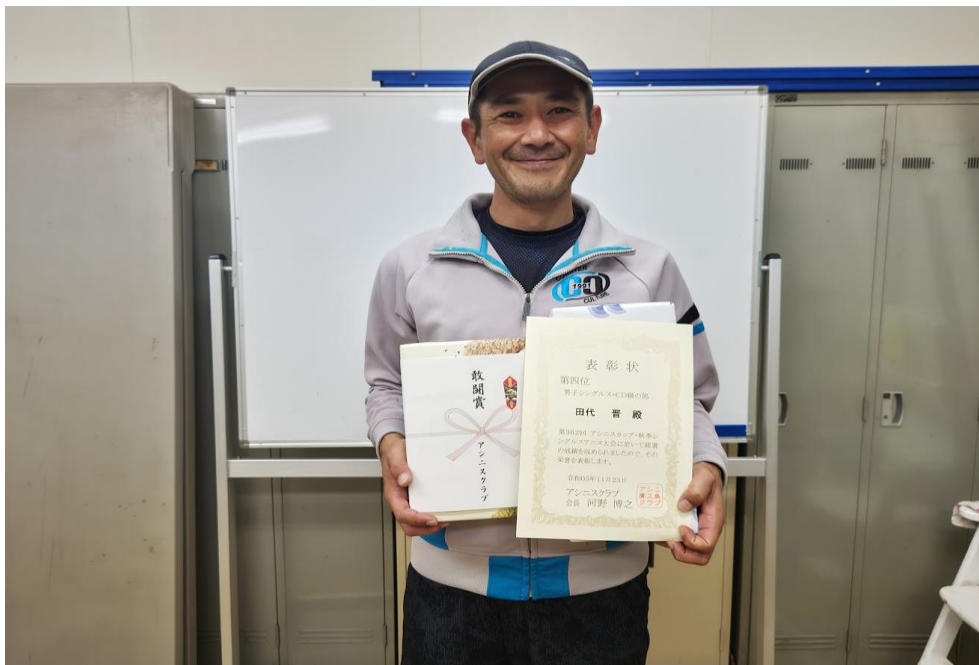 1991
CULTURE
敢闘賞
アシニスクラブ
表彰状
第四位
男子シングルス・CD級の部
田代 晋 殿
第362回 アシニスカップ・秋季シ
ングルステニス大会に於いて頭書
の成績を収められましたので、その
栄誉を表彰します。
令和05年11月23日
アシニスクラブ
会長 河野 博之